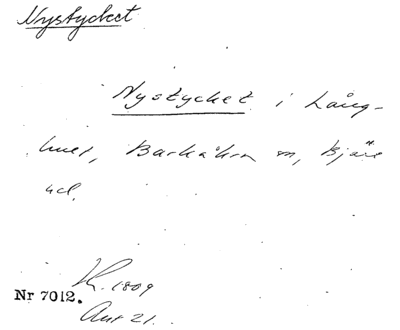 Nystycket
Nystycket i Lång-
huet, Barkåkra sn, Bjäre
hd.
Nr 7012. K. 1809
Aut 21.